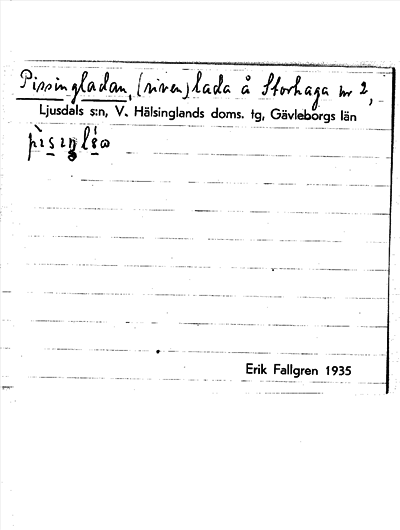 Pissingladan, (riven) lada å Storhaga nr 2,
Ljusdals s:n, V. Hälsinglands doms. tg, Gävleborgs län
Erik Fallgren 1935